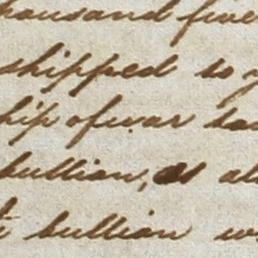 thousand five
shipped to
ship of war
bullion, as
bullion